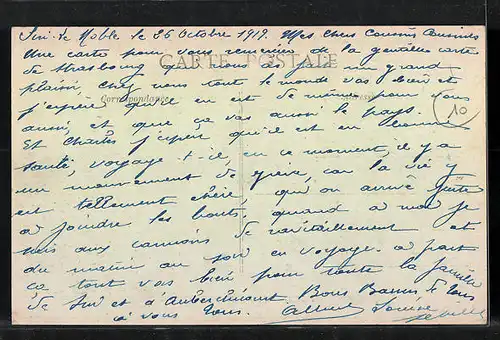 Sin-le-Noble le 26 Octobre 1919. Mes chers Cousins Cousines
Une carte pour vous remercier de la gentille carte
CARTE POSTALE
de Strasbourg qui nous as fait un grand
plaisir, chez nous tout le monde vas bien et
Correspondance
j'espère qu'il en est de même pour vous
aussi, et que ça vas aussi le pays.
10
Et Charles j'espère qu'il est en bonne
santé, voyage-t-il, en ce moment, il y a
un mouvement de grève, car la vie y
est tellement chère, qu'on arrive juste
a joindre les bouts; quand a moi je
suis aux camions de ravitaillement et
du matin au soir en voyage. a part
ça tout vas bien pour toute la famille
de Sin et a Auberchicourt Bons Baisers de tous
a vous tous. Albert Louise